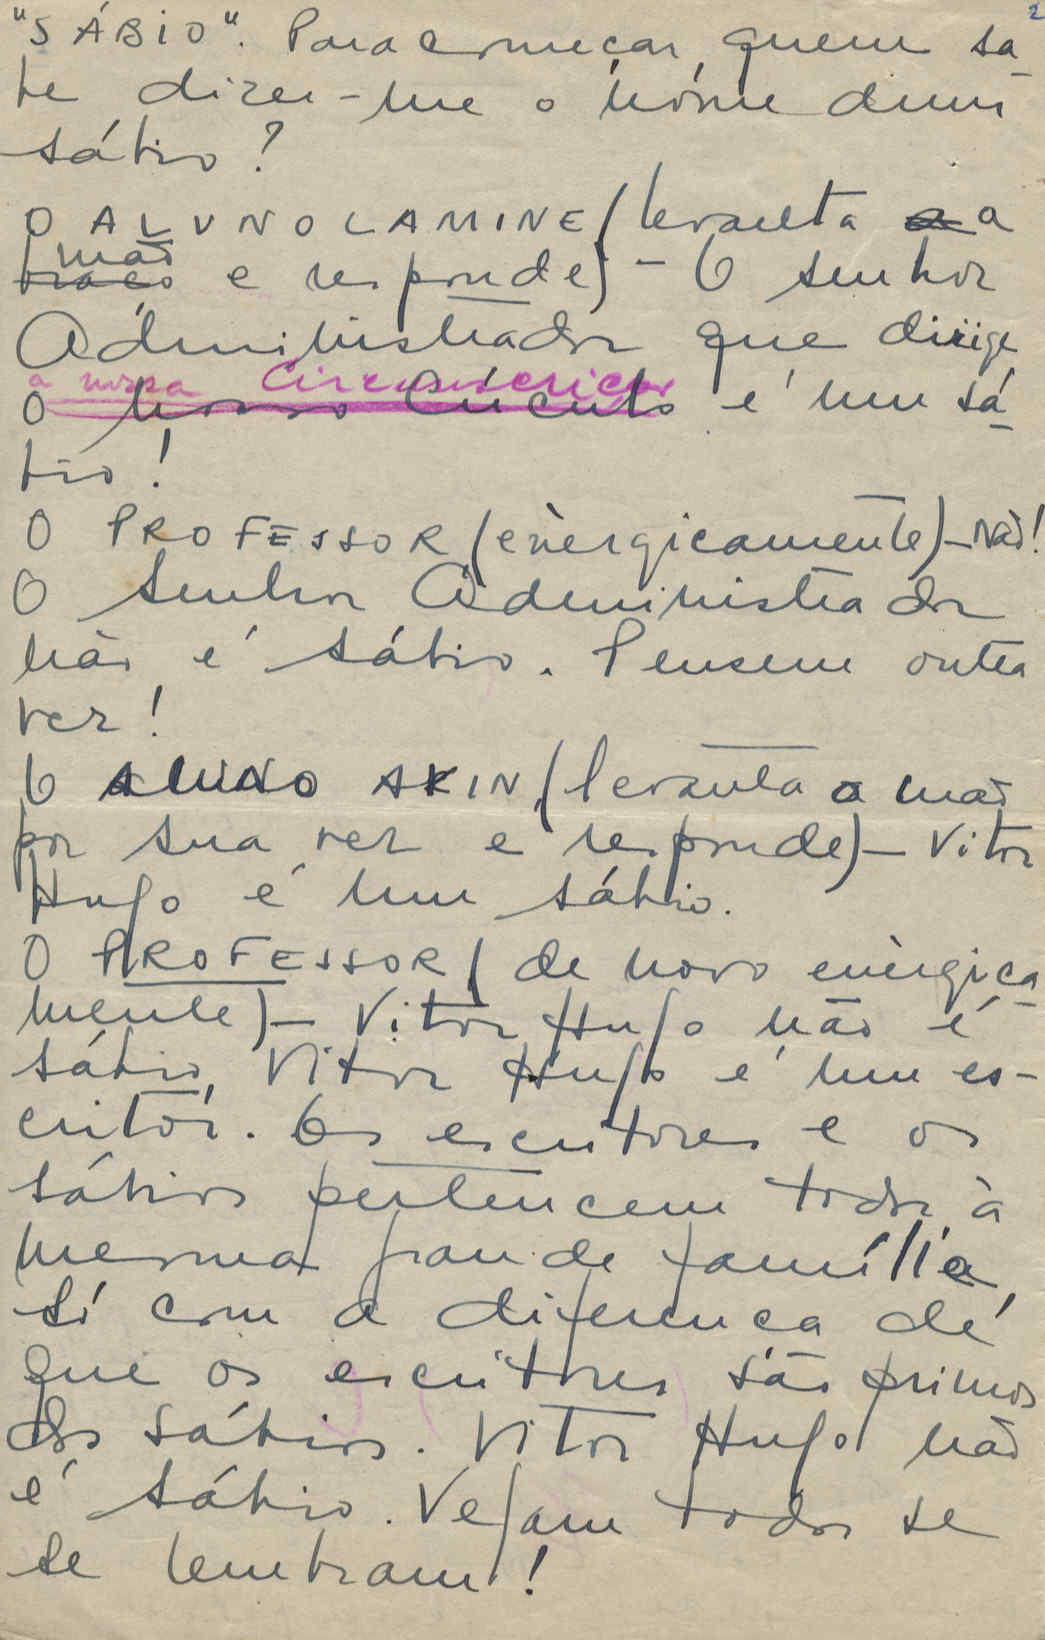 2
"SÁBIO". Para começar, quem sa-
be dizer-me o nome dum
sábio?
O ALUNO LAMINE (levanta a a
mão
braço e responde) - O senhor
Administrador que dirige
a nossa Circunscrição
o nosso Círculo é um sá-
bio!
O PROFESSOR (enèrgicamente) - Não!
O Senhor Administrador
não é sábio. Pensem outra
vez!
O ALUNO AKIN, (levanta a mão
por sua vez e responde) - Vitor
Hugo é um sábio.
O PROFESSOR (de novo enèrgica-
mente) - Vitor Hugo não é
sábio, Vitor Hugo é um es-
critor. Os escritores e os
sábios pertencem todos à
mesma grande família,
só com a diferença de
que os escritores são primos
dos sábios. Vitor Hugo não
é sábio. Vejam todos se
se lembram!